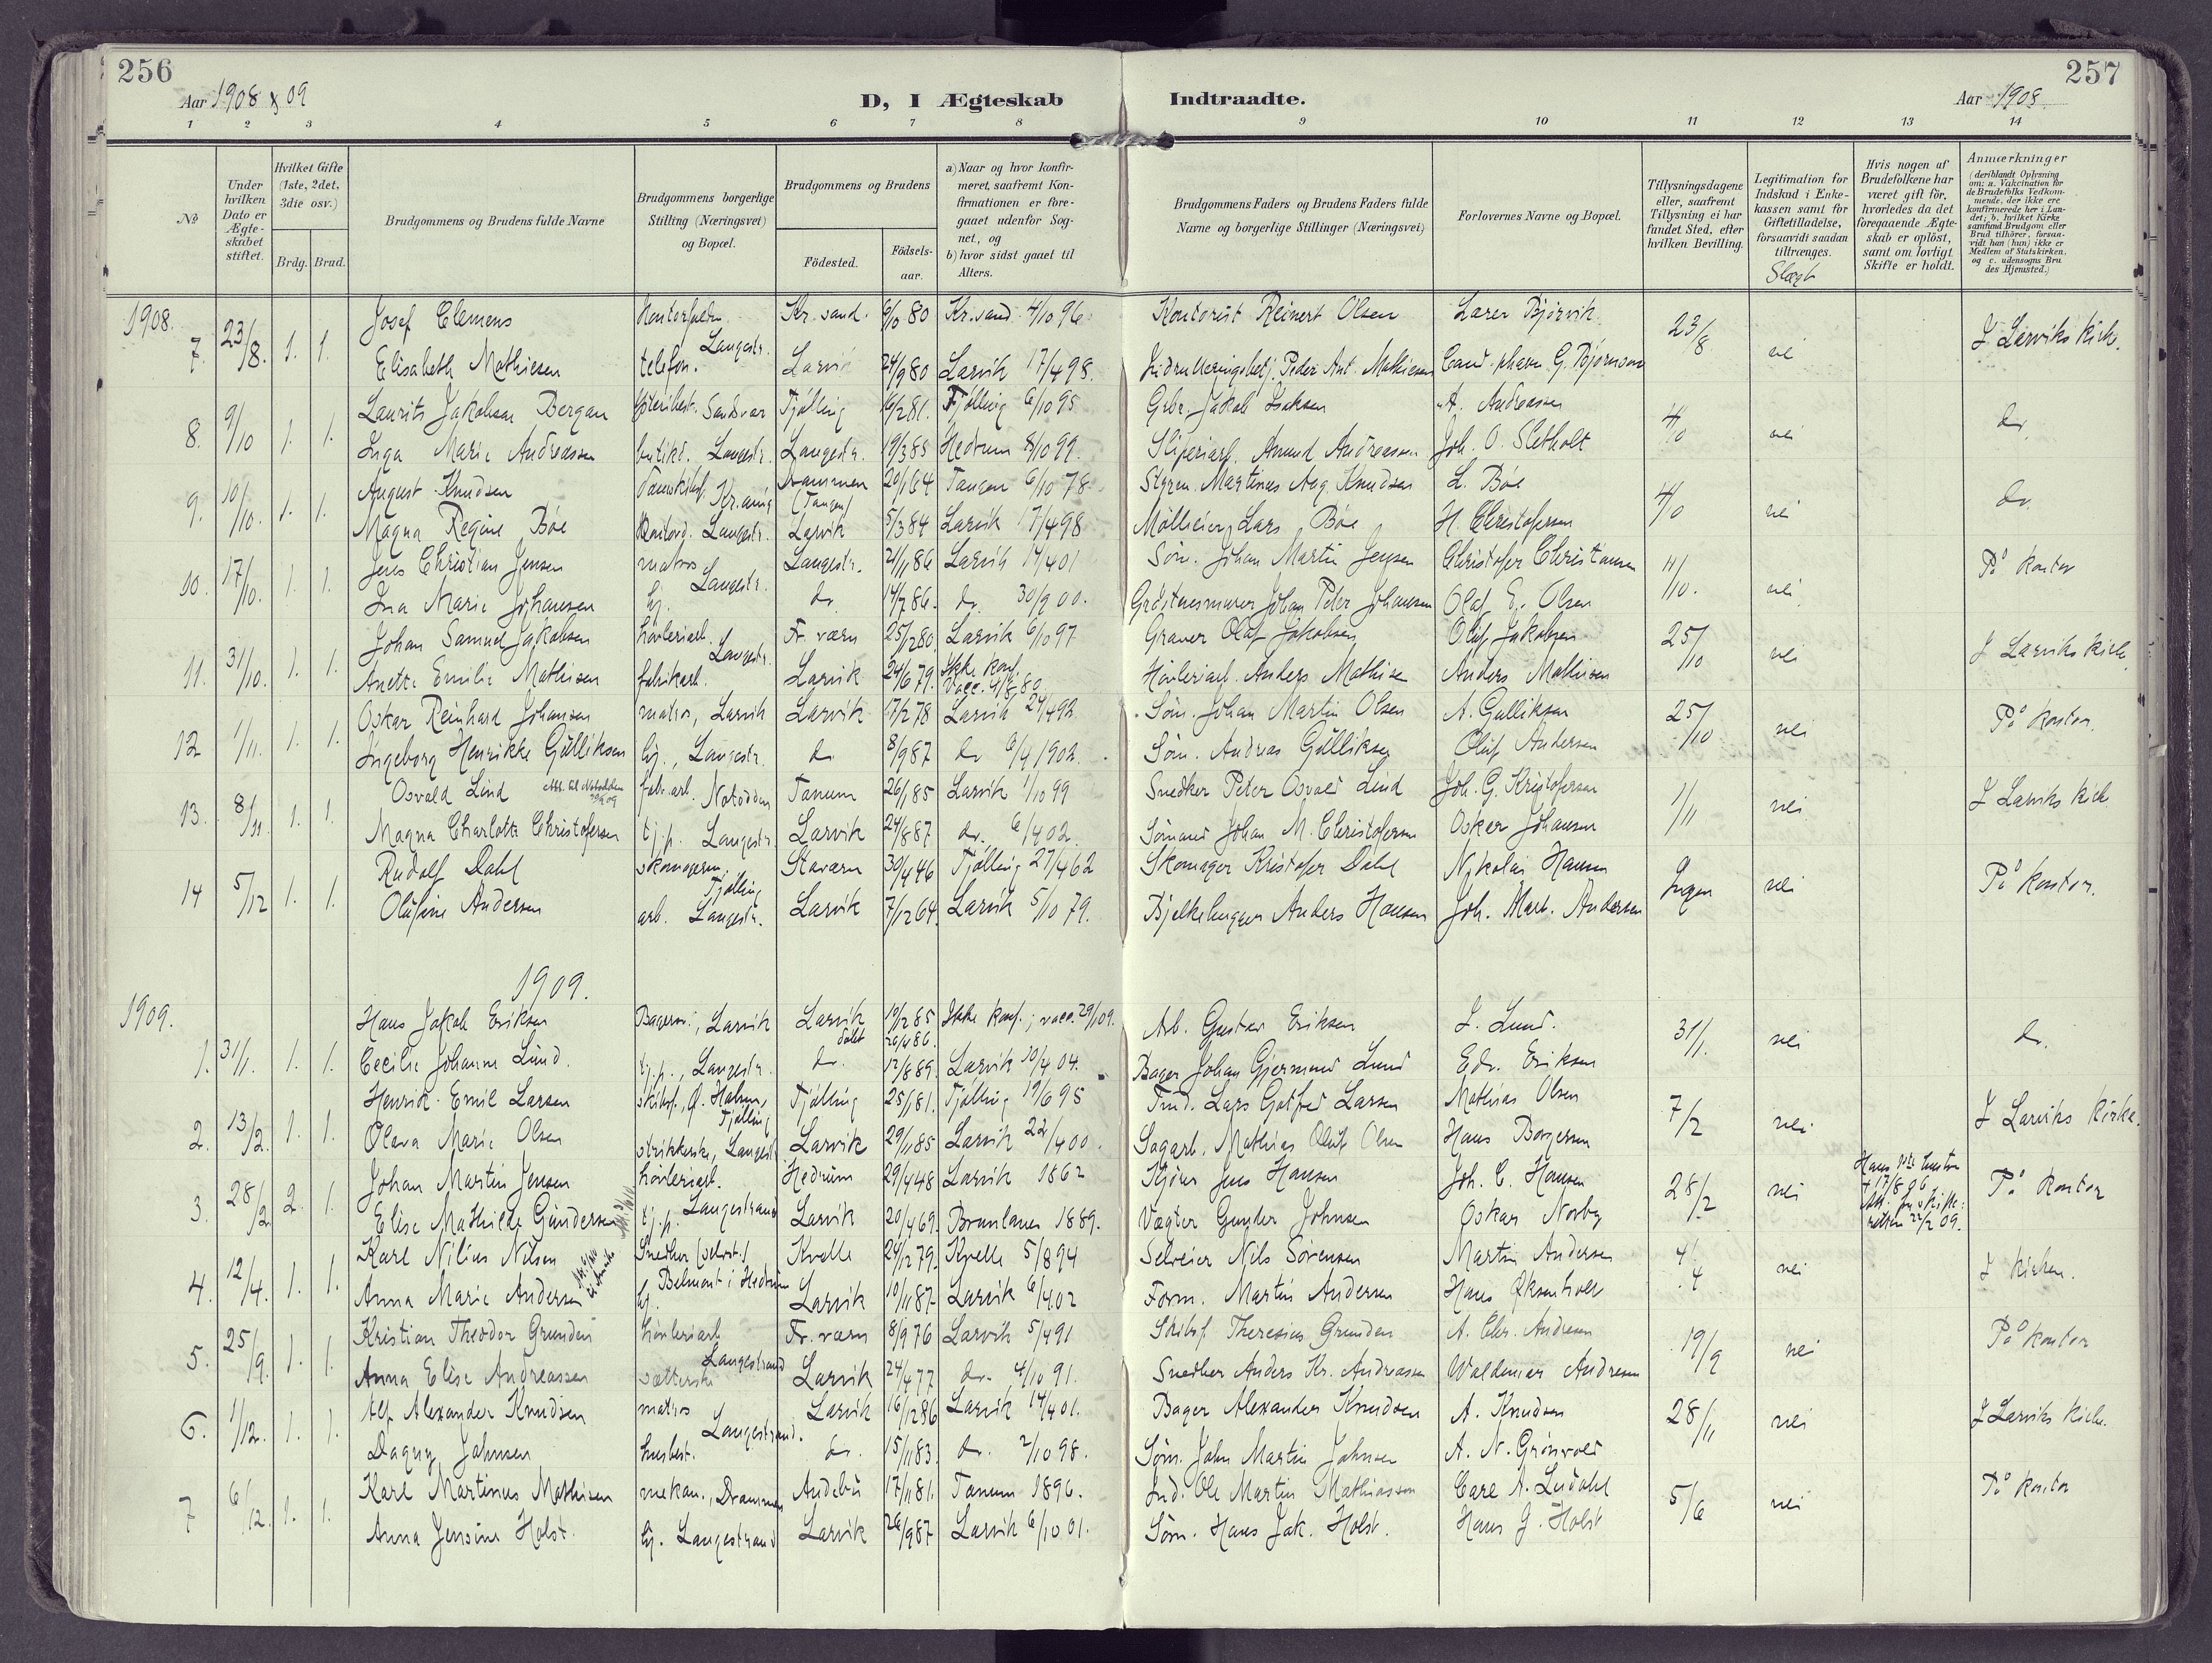 256
Aar 1908 & 09
D, I Ægteskab
Indtraadte.
257
Aar 1908.
1 2 3 4 5 6 7 8 9 10 11 12 13 14
No
Under hvilken Dato er Ægteskabet stiftet.
Hvilket Gifte (1ste, 2det, 3die osv.)
Brdg. Brud.
Brudgommens og Brudens fulde Navne
Brudgommens borgerlige Stilling (Næringsvei) og Bopæl.
Brudgommens og Brudens
Födested.
Födsels-aar.
a) Naar og hvor konfirmeret, saafremt Konfirmationen er foregaaet udenfor Sognet, og
b) hvor sidst gaaet til Alters.
Brudgommens Faders og Brudens Faders fulde Navne og borgerlige Stillinger (Næringsvei)
Forlovernes Navne og Bopæl.
Tillysningsdagene eller, saafremt Tillysning ei har fundet Sted, efter hvilken Bevilling.
Legitimation for Indskud i Enkekassen samt for Giftetilladelse, forsaavidt saadan tiltrænges.
Slægt
Hvis nogen af Brudefolkene har været gift för, hvorledes da det foregaaende Ægteskab er oplöst, samt om lovligt Skifte er holdt.
Anmærkninger (deriblandt Oplysning om: a. Vakcination for de Brudefolks Vedkommende, der ikke ere konfirmerede her i Landet; b. hvilket Kirkesamfund Brudgom eller Brud tilhörer, forsaavidt han (hun) ikke er Medlem af Statskirken, og c. udensogns Brudes Hjemsted.)
1908.
7. 23/8. 1. 1. Josef Clemens Kr.sand. 80 Kr.sand 4/10 96. Kontorist Reinert Olsen Larer Bjørvik 23/8 nei I Larviks kirke.
Elisabeth Mathiesen telefon. Langestr. Larvik 24/9 80 Larvik 17/4 98. Peder Ant. Mathiesen Cand. pharm. G. Bjørnson
8. 9/10 1. 1. Laurits Jakobsen Bergan Sandvar Tjølling 81. Tjølling 6/10 95 Gbr. Jakob Isaksen A. Andreassen 4/10 nei do.
Inga Marie Andreassen butikd. Langestr. Langestr. 19/3 85 Hedrum 8/10 99. Sliperiarb. Amund Andreassen Joh. O. Sletholt
9. 10/10. 1. 1. August Knudsen Kr.ania Drammen (Tangen) 20/1 64 Tangen 6/10 78. Styrm. Martinus Aug. Knudsen L. Bøe 4/10 nei do.
Magna Regine Bøe Kontord. Langestr. Larvik 5/3 84 Larvik 17/4 98 Mölleeier Lars Bøe H. Christofersen
10. 17/10. 1. 1. Jens Christian Jensen matros Langestr. Langestr. 21/11 86 Larvik 14/4 01 Söm. Johan Martin Jensen Christofer Christiansen 11/10. nei. På kontor
Ina Marie Johansen hj. do. 14/7 86. do. 30/9 00. Gråstensmurer Johan Peter Johansen Olaf E. Olsen
11. 31/10. 1. 1. Johan Samuel Jakobsen hövleriarb. Langestr. Fr. værn 25/12 80 Larvik 6/10 97 Graver Olaf Jakobsen Oluf Jakobsen 25/10 nei I Larviks kirke.
Anette Emilie Mathisen fabrikarb. Larvik 24/6 79. Ikke konf. vacc. 4/8 80 Hövleriarb. Anders Mathisen Anders Mathisen
12 1/11. 1. 1. Oskar Reinhard Johansen matros, Larvik Larvik 17/2 78 Larvik 24/4 92. Söm. Johan Martin Olsen A. Gulliksen 25/10 nei På kontor.
Ingeborg Henrikke Gulliksen hj., Langestr. do. 8/9 87 do 6/4 1902. Söm. Andreas Gulliksen Oluf Andersen
13. 8/11. 1. 1. Osvald Lind Att. til Notodden 09 fab.arb. Notodden Tanum 26/1 85 Larvik 1/10 99 Snedker Peter Osvald Lind Joh. G. Kristofersen 1/11 nei I Larviks kirke.
Magna Charlotte Christofersen tj.p. Langestr. Larvik 24/8 87 do. 6/4 02. Sömand Johan M. Christofersen Oskar Johansen
14 5/12 1. 1. Rudolf Dahl skomagerm. Tjølling Stavern 30/4 46 Tjølling 27/4 62 Skomager Kristofer Dahl Nikolai Hansen Ingen nei På kontor.
Olufine Andersen arb. Langestr. Larvik 7/12 64. Larvik 5/10 79. Bjelkehugger Anders Hansen Joh. Mart. Andersen
1909.
1909.
1. 31/1. 1. 1. Hans Jakob Eriksen Bagersv., Larvik Larvik 19/2 85 döbt 86. Ikke konf.; vacc. 29/1 09. Arb. Gustav Eriksen J. Lund. 31/1. nei do.
Cecilie Johanne Lund. tj.p., Langestr. do. 12/8 89. Larvik 10/4 04. Bager Johan Gjermund Lund Edv. Eriksen
2. 13/2. 1. 1. Henrik Emil Larsen Tjölling Tjölling 25/1 81. Tjölling 19/6 95 Lars Gotfred Larsen Mathias Olsen 7/2 nei I Larviks kirke.
Olava Marie Olsen strikkerske, Langestr. Larvik 29/11 85 Larvik 22/4 00. Sagarb. Mathias Oluf Olsen Hans Borgersen
3. 28/2 2. 1. Johan Martin Jensen hövleriarb. Langestrand Hedrum 29/4 48 Larvik 1862 Jens Hansen Joh. C. Hansen 28/2 nei Hans hustru † 17/8 06. Att. fra skifteretten 22/2 09. På kontor
Elise Mathilde Gundersen tj.p. Larvik 20/4 69. Brunlanes 1889. Vægter Gunder Johnsen Oskar Norby
4. 12/4. 1. 1. Karl Nilius Nilsen Snedker (selvst.) Belmont i Hedrum Kvelle 24/12 79. Kvelle 5/8 94 Selveier Nils Sørensen Martin Andersen 4/4 nei I kirken.
Anna Marie Andersen hj. Larvik 10/11 87. Larvik 6/4 02 Form. Martin Andersen Hans
5. 25/9. 1. 1. Kristian Theodor Grunden hövleriarb Langestrand Fr. værn 8/9 76 Larvik 5/4 91 Skibsf. Theresius Grunden A. Chr. Andresen 19/9 nei På kontor
Anna Elise Andreassen sætterske Larvik 24/4 77 do. 4/10 91. Snedker Anders Kr. Andreassen Waldemar Andresen
6. 1/12. 1. 1. Alf Alexander Knudsen matros Langestrand. Larvik 16/12 86 Larvik 14/4 01. Bager Alexander Knudsen A. Knudsen 28/11 nei I Larviks kirke.
Dagny Johnsen husbest. do. 15/11 83. do. 2/10 98. Söm. John Martin Johnsen A. N. Grönvold
7 6/12. 1. 1. Karl Martinus Mathisen mekan., Drammen Andebu 17/11 81. Tanum 1896. Ind. Ole Martin Mathiassen Carl A. Lindahl 5/6 nei På kontor
Anna Jensine Holst. hj. Langestrand Larvik 26/9 87 Larvik 6/10 01. Söm. Hans Jak. Holst. Hans J. Holst